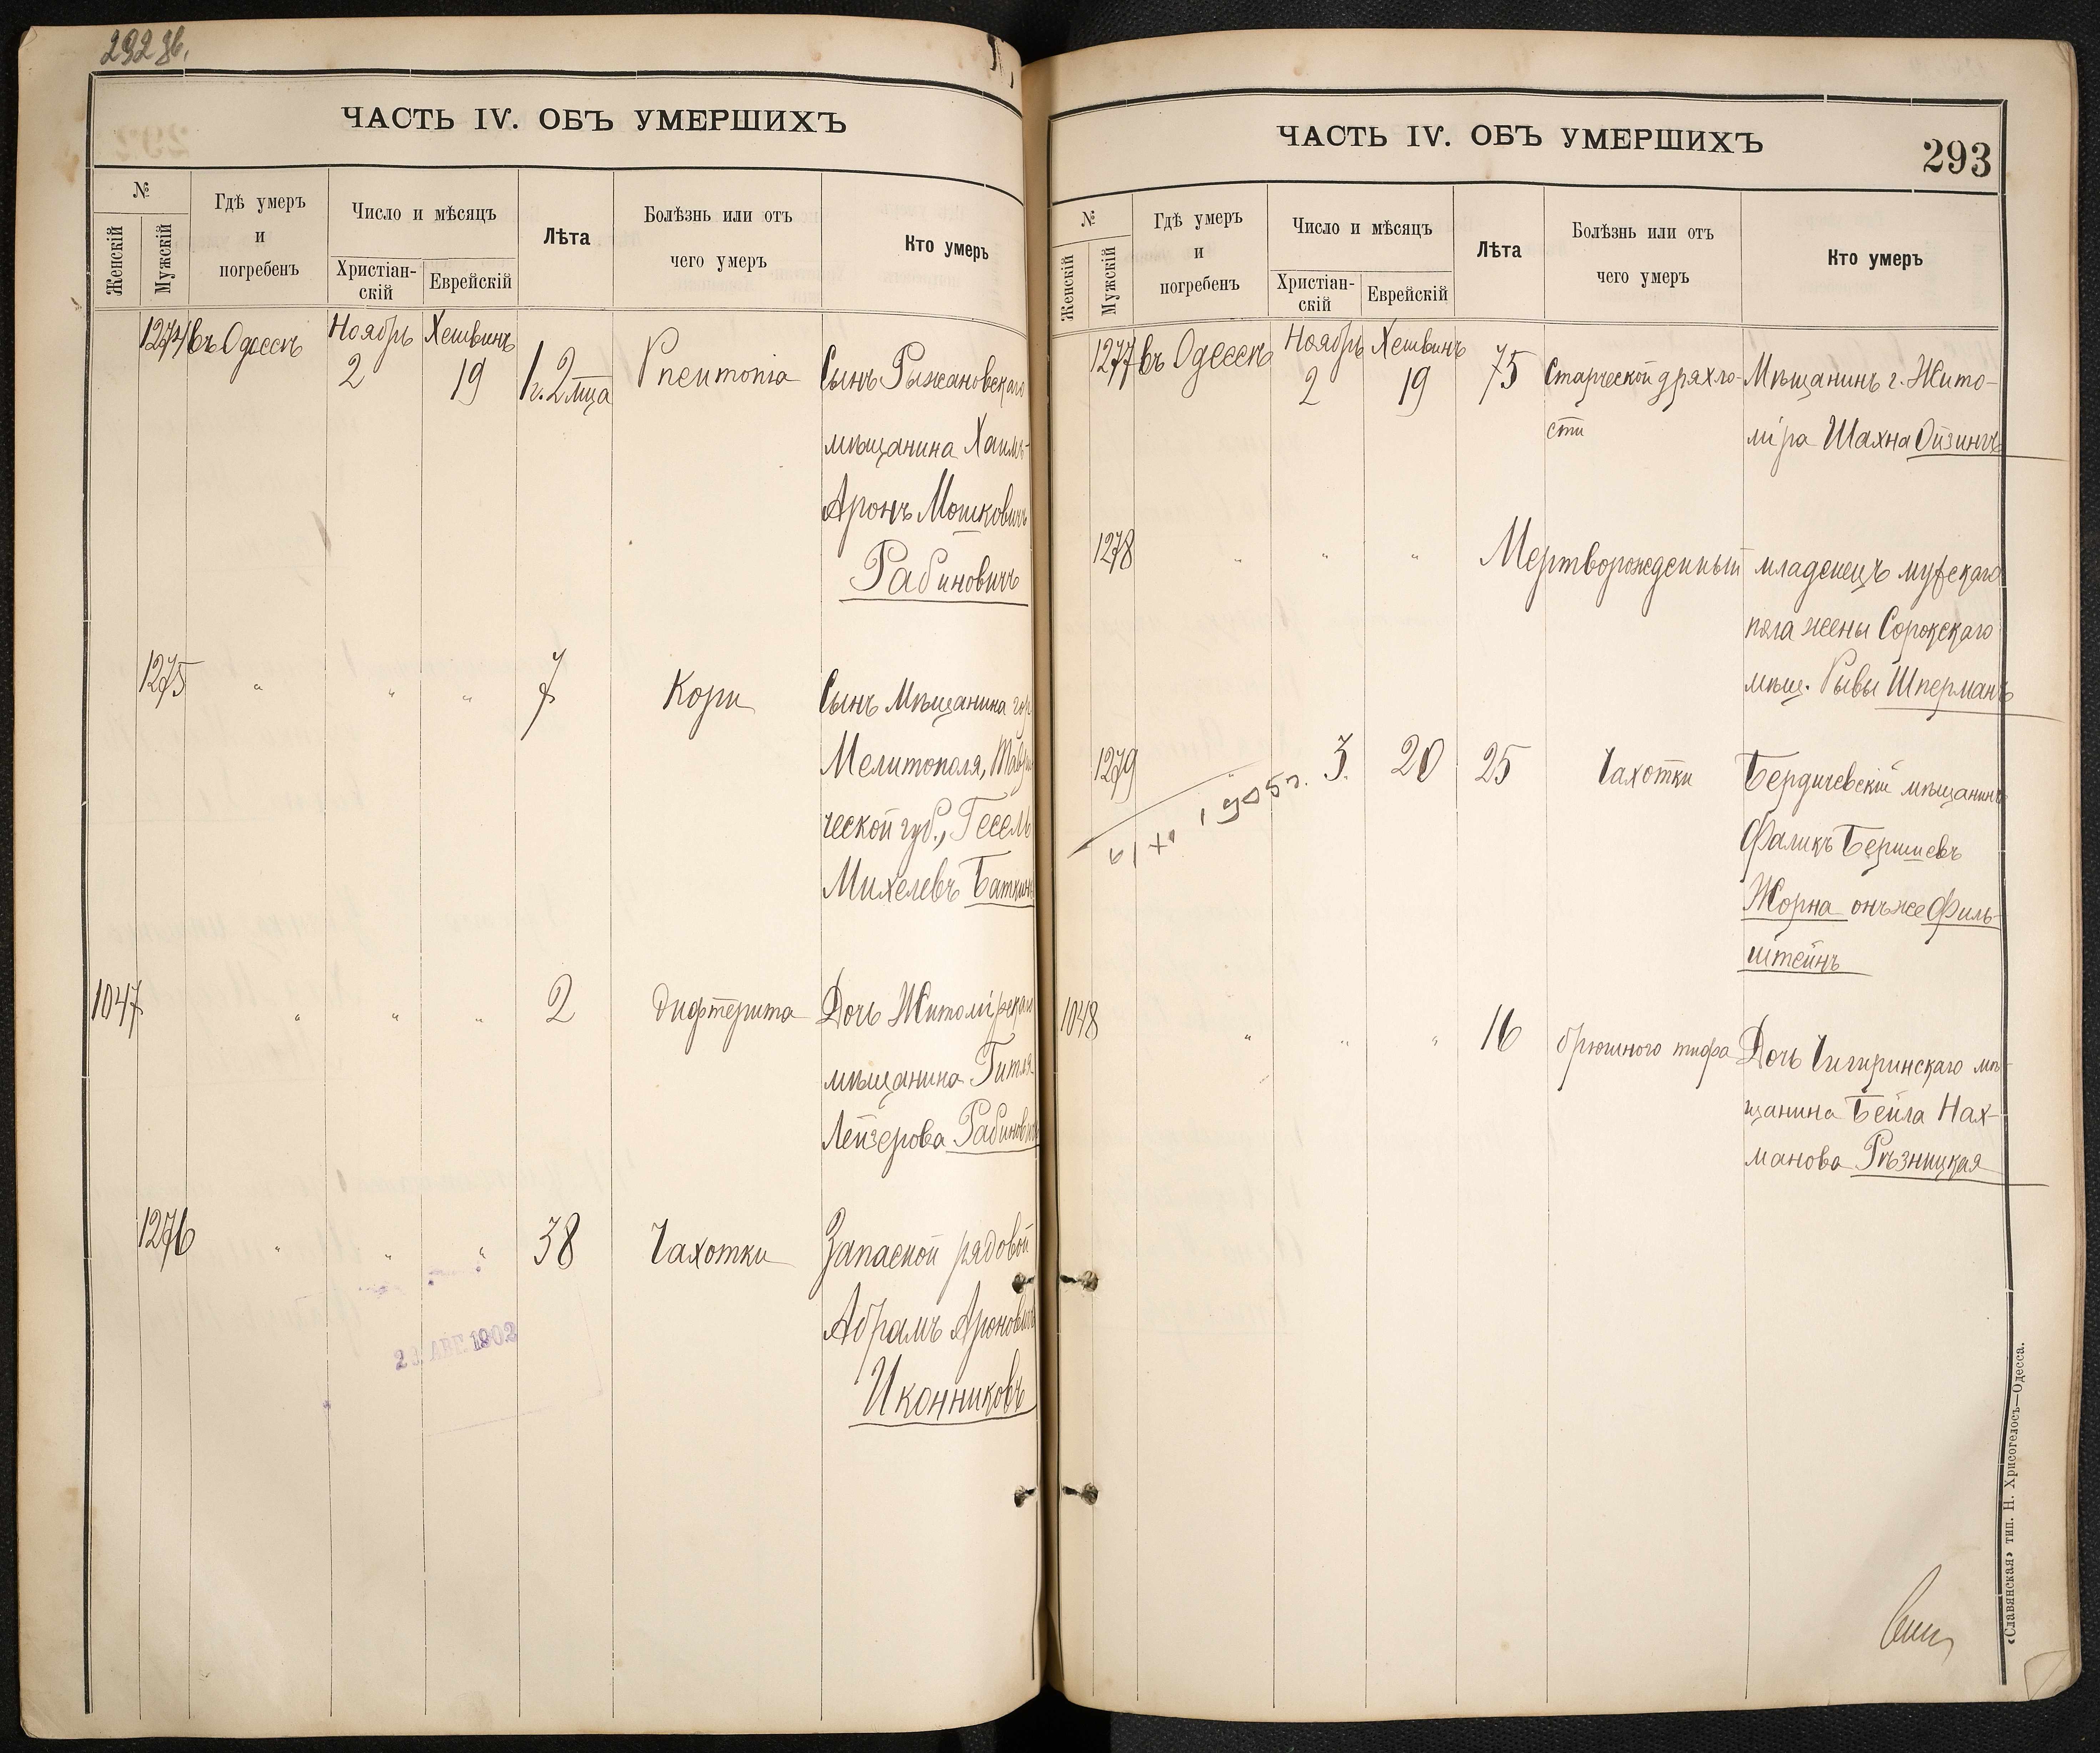 292 об.
ЧАСТЬ IV. ОБЪ УМЕРШИХЪ
№
Женскій
Мужскій
Гдѣ умеръ
и
погребенъ
Число и мѣсяцъ
Христіан-
скій
Еврейскій
Лѣта
Болѣзнь или отъ
чего умеръ
Кто умеръ
1274 въ Одессѣ Ноябрь 2 Хешвинъ 19 1 г. 2 мца Pneumonia Сынъ Рыжановскаго
мѣщанина Хаимъ-
Аронъ Мошковичъ
Рабиновичъ
1275 " " " 7 Кори Сынъ Мѣщанина гор
Мелитополя, Таври
ческой губ., Гесель
Михелевъ Баткинъ
1047 " " " 2 дифтерита Дочь Житомірскаго
мѣщанина Гитля-
Лейзерова Рабинович
1276 " " " 38 Чахотки Запасной рядовой
Абрамъ Ароновичъ
Иконниковъ
АВГ. 1902
ЧАСТЬ IV. ОБЪ УМЕРШИХЪ
293
№
Женскій
Мужскій
Гдѣ умеръ
и
погребенъ
Число и мѣсяцъ
Христіан-
скій
Еврейскій
Лѣта
Болѣзнь или отъ
чего умеръ
Кто умеръ
1277 въ Одессѣ Ноябрь 2 Хешвинъ 19 75 Старческой дряхло- Мѣщанинъ г. Жито-
сти міра Шахна Ойзингъ
1278 " " " Мертворожденный младенецъ мужскаго
пола жены Сорокскаго
мѣщ. Рывы Шперманъ
1279 " 3. 20 25 Чахотки Бердичевскій мѣщанинъ
Фаликъ Бершевъ
Жорна онъ же Филь-
штейнъ
1905 г.
1048 " " " 16 брюшного тифа Дочь Чигиринскаго мѣ-
щанина Бейла Нах-
манова Рѣзницкая
«Славянская» тип. Н. Хрисогелосъ—Одесса.